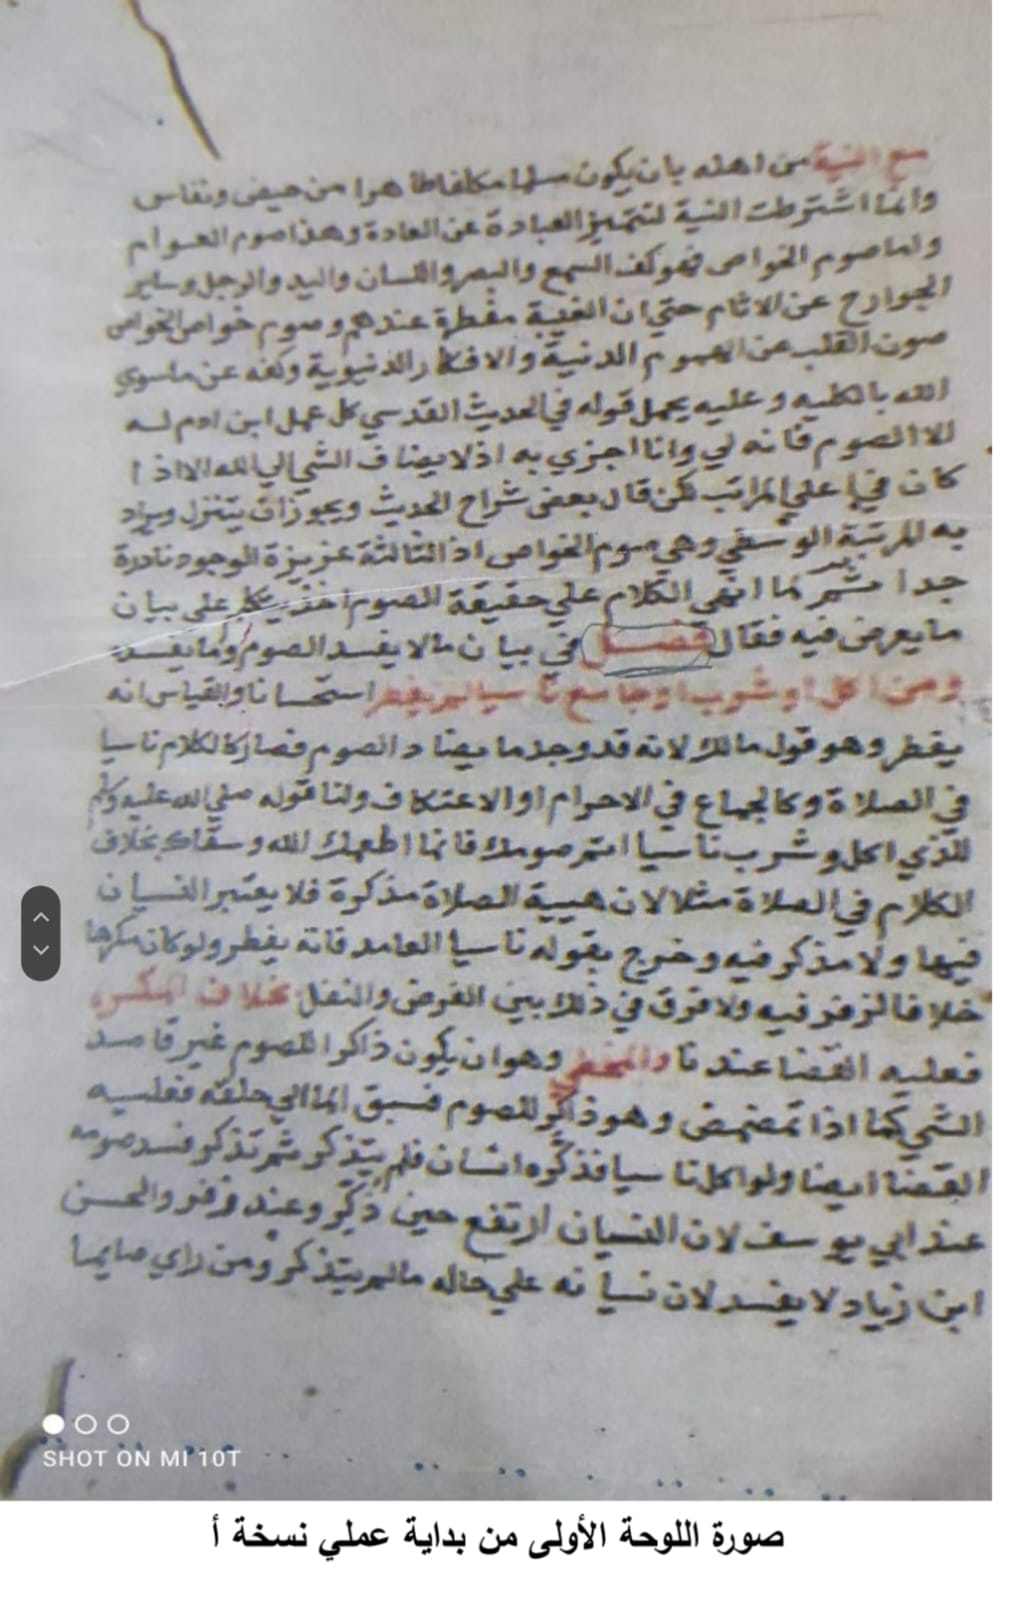 مع النية من اهله بان يكون مسلما مكلفا طاهرا من حيض ونفاس
وانما اشترطت النية لتتميز العبادة عن العادة وهذا صوم العوام
واما صوم الخواص فهو كف السمع والبصر واللسان واليد والرجل وساير
الجوارح عن الاثام حتي ان الغيبة مفطرة عندهم وصوم خواص الخواص
صون القلب عن الهموم الدنية والافكار الدنيوية وكفه عن ماسوي
الله بالكليه وعليه يحمل قوله في الحديث القدسي كل عمل ابن ادم له
الا الصوم فانه لي وانا اجزي به اذ لا يضاف الشي الي الله الا اذا
كان في اعلي المراتب لكن قال بعض شراح الحديث ويجوز ان يتنزل ويراد
به المرتبة الوسطي وهي صوم الخواص اذ الثالثة عزيزة الوجود نادرة
جدا ثم لما انهى الكلام علي حقيقة الصوم اخذ يتكلم علي بيان
ما يعرض فيه فقال فصل في بيان ما لا يفسد الصوم وما يفسده
ومن اكل او شرب او جامع ناسيا لم يفطر استحسانا والقياس انه
يفطر وهو قول مالك لانه قد وجد ما يضاد الصوم فصار كالكلام ناسيا
في الصلاة وكالجماع في الاحرام او الاعتكاف ولنا قوله صلي الله عليه وسلم
للذي اكل وشرب ناسيا اتم صومك فانما اطعمك الله وسقاك بخلاف
الكلام في الصلاة مثلا لان هيية الصلاة مذكرة فلا يعتبر النسيان
فيها ولا مذكر فيه وخرج بقوله ناسيا العامد فانه يفطر ولو كان مكرها
خلافا لزفر فيه ولا فرق في ذلك بين الفرض والنفل بخلاف المكره
فعليه القضا عندنا والمخطي وهو ان يكون ذاكرا للصوم غير قاصد
الشي كما اذا تمضمض وهو ذاكر للصوم فسبق الما الي حلقه فعليه
القضا ايضا ولو اكل ناسيا فذكره انسان فلم يتذكر ثم تذكر فسد صومه
عند ابي يوسف لان النسيان ارتفع حين ذكر وعند زفر والحسن
ابن زياد لا يفسد لان نسيانه علي حاله ما لم يتذكر ومن راي صايما
SHOT ON MI 10T
صورة اللوحة الأولى من بداية عملي نسخة أ